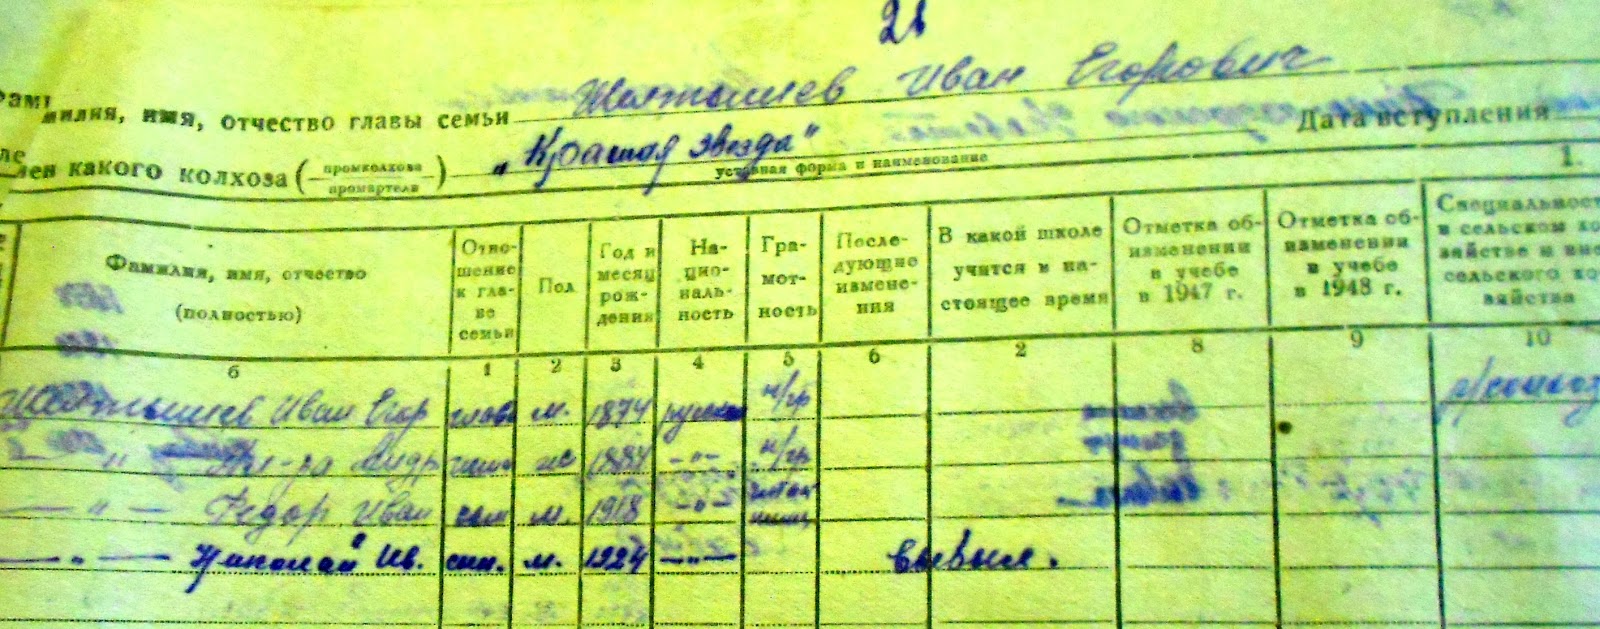 21
Фамилия, имя, отчество главы семьи Желтышев Иван Егорович
Член какого колхоза (промколхоза промартели) „Красная звезда“ Дата вступления
уставная форма и наименование
1.
Фамилия, имя, отчество (полностью) Отно-шение к гла-ве семьи Пол Год и месяц рож-дения На-цио-наль-ность Гра-мот-ность После-дующие измене-ния В какой школе учится в на-стоящее время Отметка об-изменении в учебе в 1947 г. Отметка об-изменении в учебе в 1948 г. Специальност в сельском хо зяйстве и вне сельского хо зяйства
б 1 2 3 4 5 6 2 8 9 10
Желтышев Иван Егор глава м. 1874 русский н/гр
— " — Андр жена ж 1884 —"— н/гр
— " — Федор Иван сын м. 1918 —"—
— " — Николай Ив. сын. м. 1924 —"— выбыл.